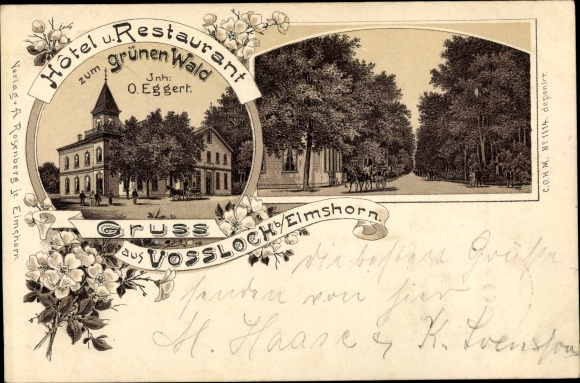 Hôtel u. Restaurant
zum grünen Wald
Inh:
O. Eggert.
Gruss
aus VOSSLOCH b/Elmshorn.
die besten Grüße
senden von hier
M. Haase & K. Svensson
Verlag v. A. Rosenberg jr. Elmshorn.
C.O.H.W. No 1114. deponirt.